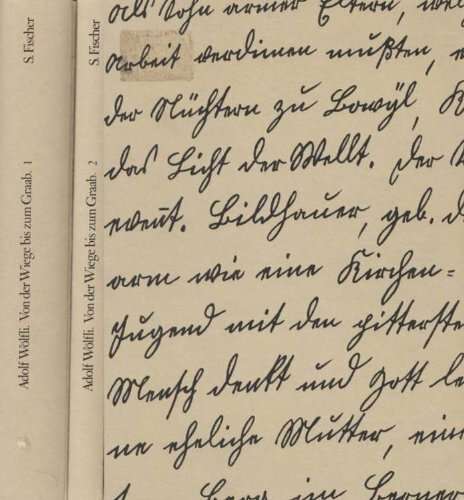 Adolf Wölfli. Von der Wiege bis zum Graab. 1
S. Fischer
Adolf Wölfli. Von der Wiege bis zum Graab. 2
S. Fischer
als Sohn armer Eltern,
arbeit verdienen mußten,
der Nüchtern zu Bowÿl,
das Licht der Wellt. Der
event. Bildhauer, geb.
arm wie eine Kirchen=
Jugend mit den pittersten
Mensch denkt und Gott
ne eheliche Mutter,
Berg im Berner